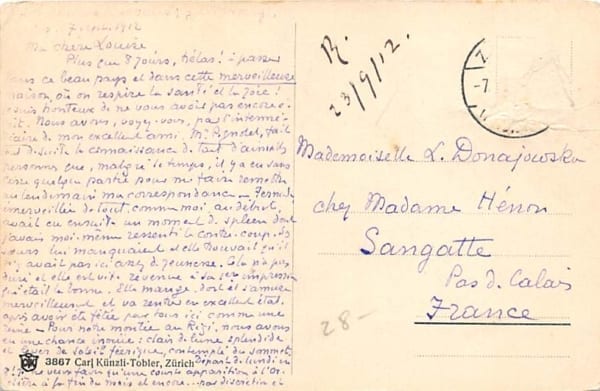 7 sept. 1912
Ma chère Louise
Plus que 8 jours, hélas! à passer
dans ce beau pays et dans cette merveilleuse
maison, où on respire la santé et la joie!
suis honteux de ne vous avoir pas encore
Nous avons, voyez-vous, par l'intermé-
diaire de mon excellent ami Mr.
de suite la connaissance de tant d'aimables
personnes que, malgré le temps, il y a eu sans
cesse quelque partie pour me faire remettre
au lendemain ma correspondance
émerveillée de tout, comme moi au début,
avait eu ensuite un moment de spleen dont
j'avais moi-même ressenti le contre-coup.
lui manquaient et elle trouvait qu'il
n'y avait pas ici assez de jeunesse. Cela n'a pas
duré et elle est vite revenue à sa 1ère impression
qui était la bonne. Elle mange, dort et s'amuse
merveilleusement et va rentrer en excellent état,
après avoir été fêtée par tous ici comme une
reine - Pour notre montée au Rigi, nous avons
eu une chance inouïe: clair de lune splendide
et lever de soleil féerique, contemplé du sommet.
Départ de lundi en
une courte apparition à l'Or-
à la fin du mois et encore... pas discrétion et
R.
23/9/12.
Z
-7.
Mademoiselle L. Donajowska
chez Madame Hénon
Sangatte
Pas d. Calais
France
28-
3867 Carl Künzli-Tobler, Zürich